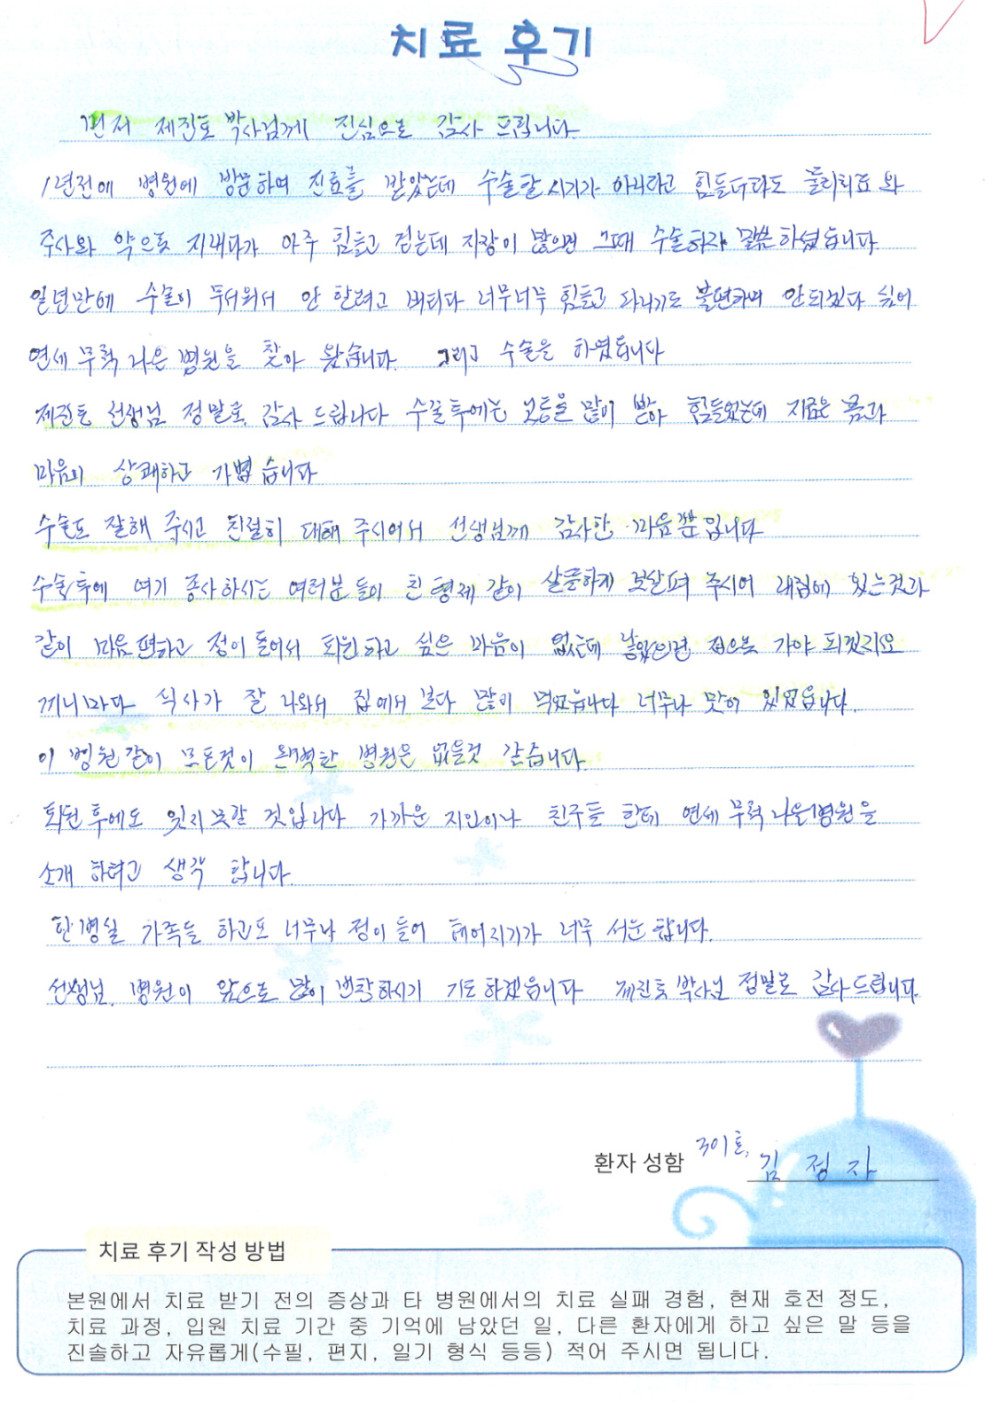 치료 후기
먼저 제진호 박사님께 진심으로 감사 드립니다.
1년전에 병원에 방문하여 진료를 받았는데 수술할 시기가 아니라고 힘들더라도 물리치료와
주사와 약으로 지내다가 아주 힘들고 걷는데 지장이 많으면 그때 수술하자 말씀하셨습니다.
일년만에 수술이 두서워서 안 할려고 버티다 너무너무 힘들고 다니기도 불편하며 안되겠다 싶어
연세 무척 나은 병원을 찾아 왔습니다. 그리고 수술을 하였습니다
제진호 선생님 정말로 감사 드립니다 수술후에는 고통을 많이 받아 힘들었는데 지금은 몸과
마음이 상쾌하고 가볍습니다
수술도 잘해 주시고 친절히 대해 주시어서 선생님께 감사한 마음뿐입니다
수술후에 여기 종사하시는 여러분들이 친형제 같이 살뜰하게 보살펴 주시어 내집에 있는것과
같이 마음편하고 정이 들어서 퇴원하고 싶은 마음이 없는데 낳았으면 집으로 가야 되겠지요
끼니마다 식사가 잘 나와서 집에서 보다 많이 먹었습니다 너무나 맛이 있었습니다.
이 병원같이 모든것이 완벽한 병원은 없을것 같습니다.
퇴원후에도 잊지못할 것입니다 가까운 지인이나 친구들 한테 연세 무척 나은병원을
소개 하려고 생각 합니다.
한병실 가족들 하고도 너무나 정이 들어 헤어지기가 너무 서운 합니다.
선생님. 병원이 앞으로 많이 번창하시기 기도하겠습니다 제진호 박사님 정말로 감사드립니다.
환자 성함 301호, 김 정 자
치료 후기 작성 방법
본원에서 치료 받기 전의 증상과 타 병원에서의 치료 실패 경험, 현재 호전 정도,
치료 과정, 입원 치료 기간 중 기억에 남았던 일, 다른 환자에게 하고 싶은 말 등을
진솔하고 자유롭게(수필, 편지, 일기 형식 등등) 적어 주시면 됩니다.